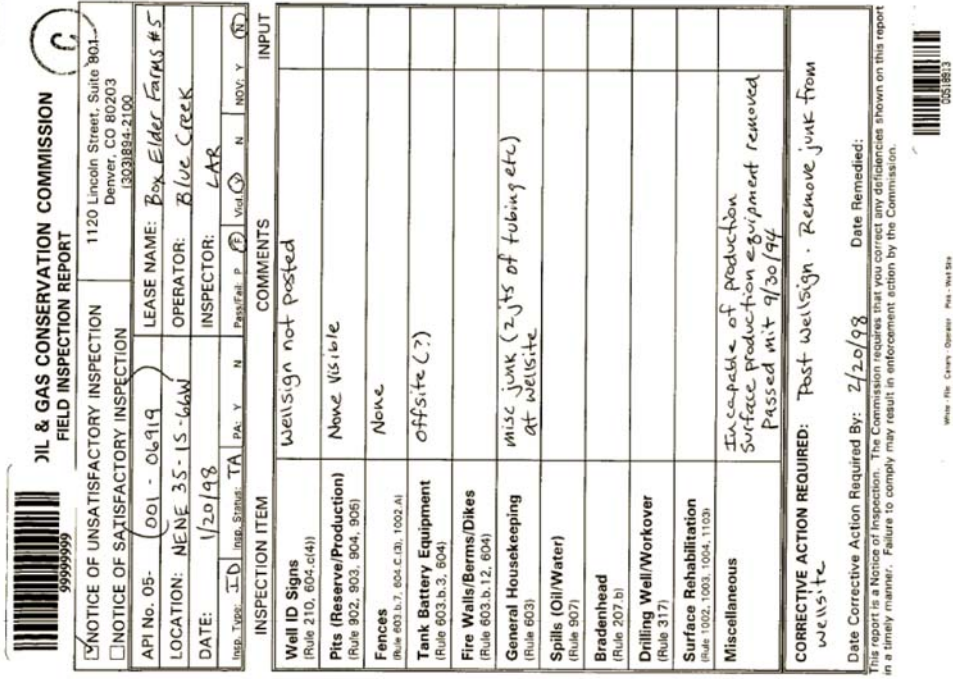 99999999
OIL & GAS CONSERVATION COMMISSION
FIELD INSPECTION REPORT
C
NOTICE OF UNSATISFACTORY INSPECTION
NOTICE OF SATISFACTORY INSPECTION
1120 Lincoln Street, Suite 801
Denver, CO 80203
(303)894-2100
API No. 05- 001 - 06919 LEASE NAME: Box Elder Farms #5
LOCATION: NENE 35-1S-66W OPERATOR: Blue Creek
DATE: 1/20/98 INSPECTOR: LAR
Insp. Type: ID Insp. Status: TA PA: Y N Pass/Fail: P F Viol. Y N NOV: Y N
INSPECTION ITEM COMMENTS INPUT
Well ID Signs
(Rule 210, 604.c(4))
Wellsign not posted
Pits (Reserve/Production)
(Rule 902, 903, 904, 905)
None Visible
Fences
(Rule 603.b.7, 604.C.(3), 1002.A)
None
Tank Battery Equipment
(Rule 603.b.3, 604)
offsite (?)
Fire Walls/Berms/Dikes
(Rule 603.b.12, 604)
General Housekeeping
(Rule 603)
misc junk (2 jts of tubing etc)
at wellsite
Spills (Oil/Water)
(Rule 907)
Bradenhead
(Rule 207.b)
Drilling Well/Workover
(Rule 317)
Surface Rehabilitation
(Rule 1002, 1003, 1004, 1103)
Miscellaneous
Incapable of production
Surface production equipment removed
Passed mit 9/30/94
CORRECTIVE ACTION REQUIRED: Post Wellsign. Remove junk from
wellsite
Date Corrective Action Required By: 2/20/98 Date Remedied:
This report is a Notice of Inspection. The Commission requires that you correct any deficiencies shown on this report
in a timely manner. Failure to comply may result in enforcement action by the Commission.
White - File Canary - Operator Pink - Well Site
00518913